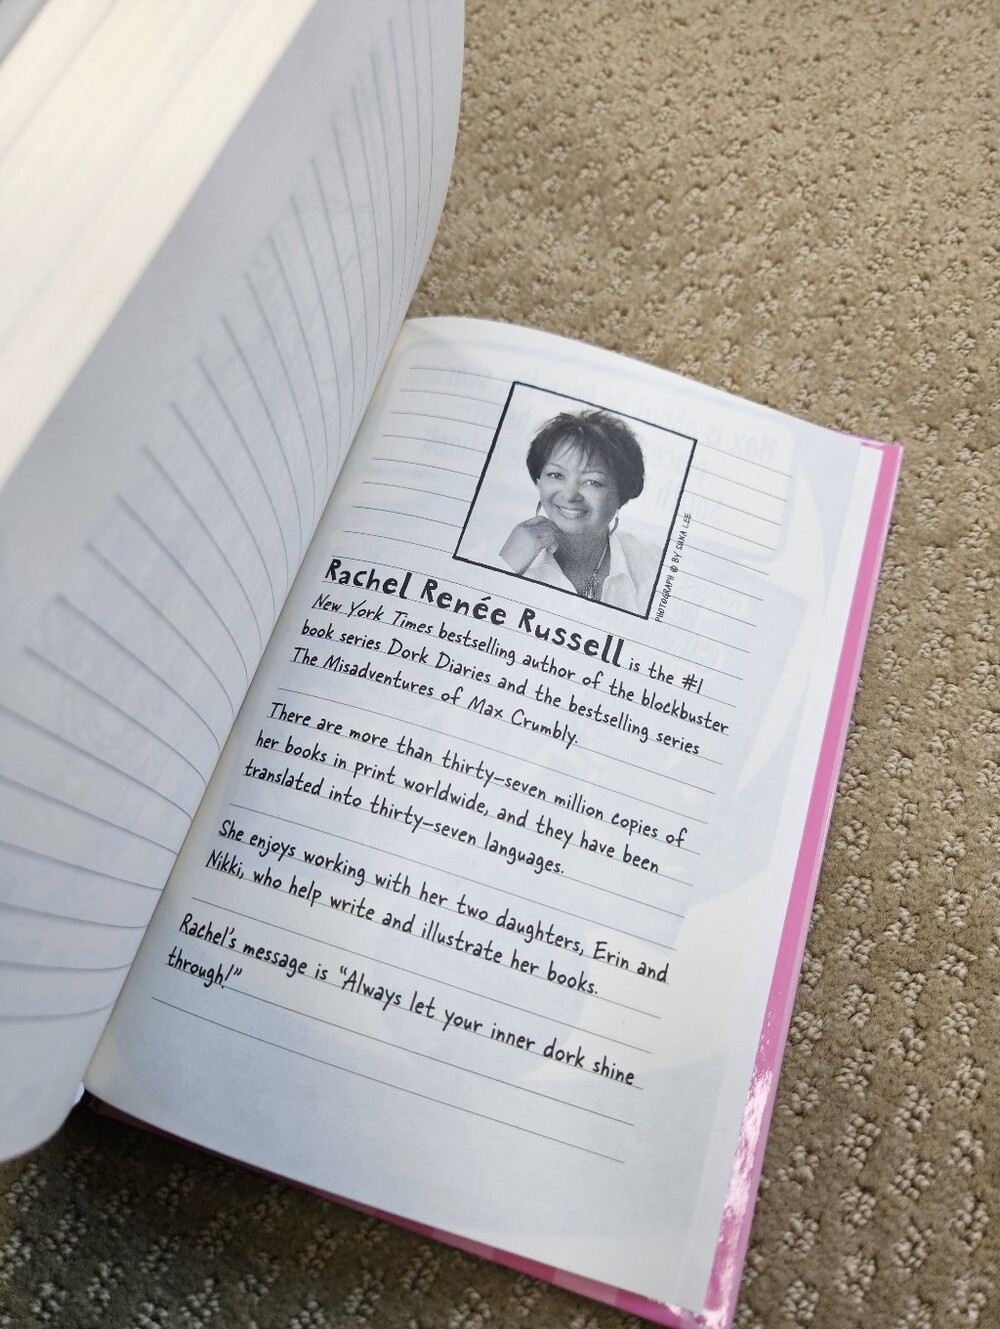 PHOTOGRAPH © BY SUNA LEE
Rachel Renée Russell is the #1
New York Times bestselling author of the blockbuster
book series Dork Diaries and the bestselling series
The Misadventures of Max Crumbly.
There are more than thirty-seven million copies of
her books in print worldwide, and they have been
translated into thirty-seven languages.
She enjoys working with her two daughters, Erin and
Nikki, who help write and illustrate her books.
Rachel's message is "Always let your inner dork shine
through!"